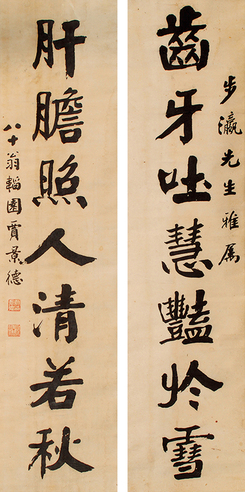 步瀛先生雅属
齒牙吐慧豔於雪
肝膽照人清若秋
八十翁韜園賈景德